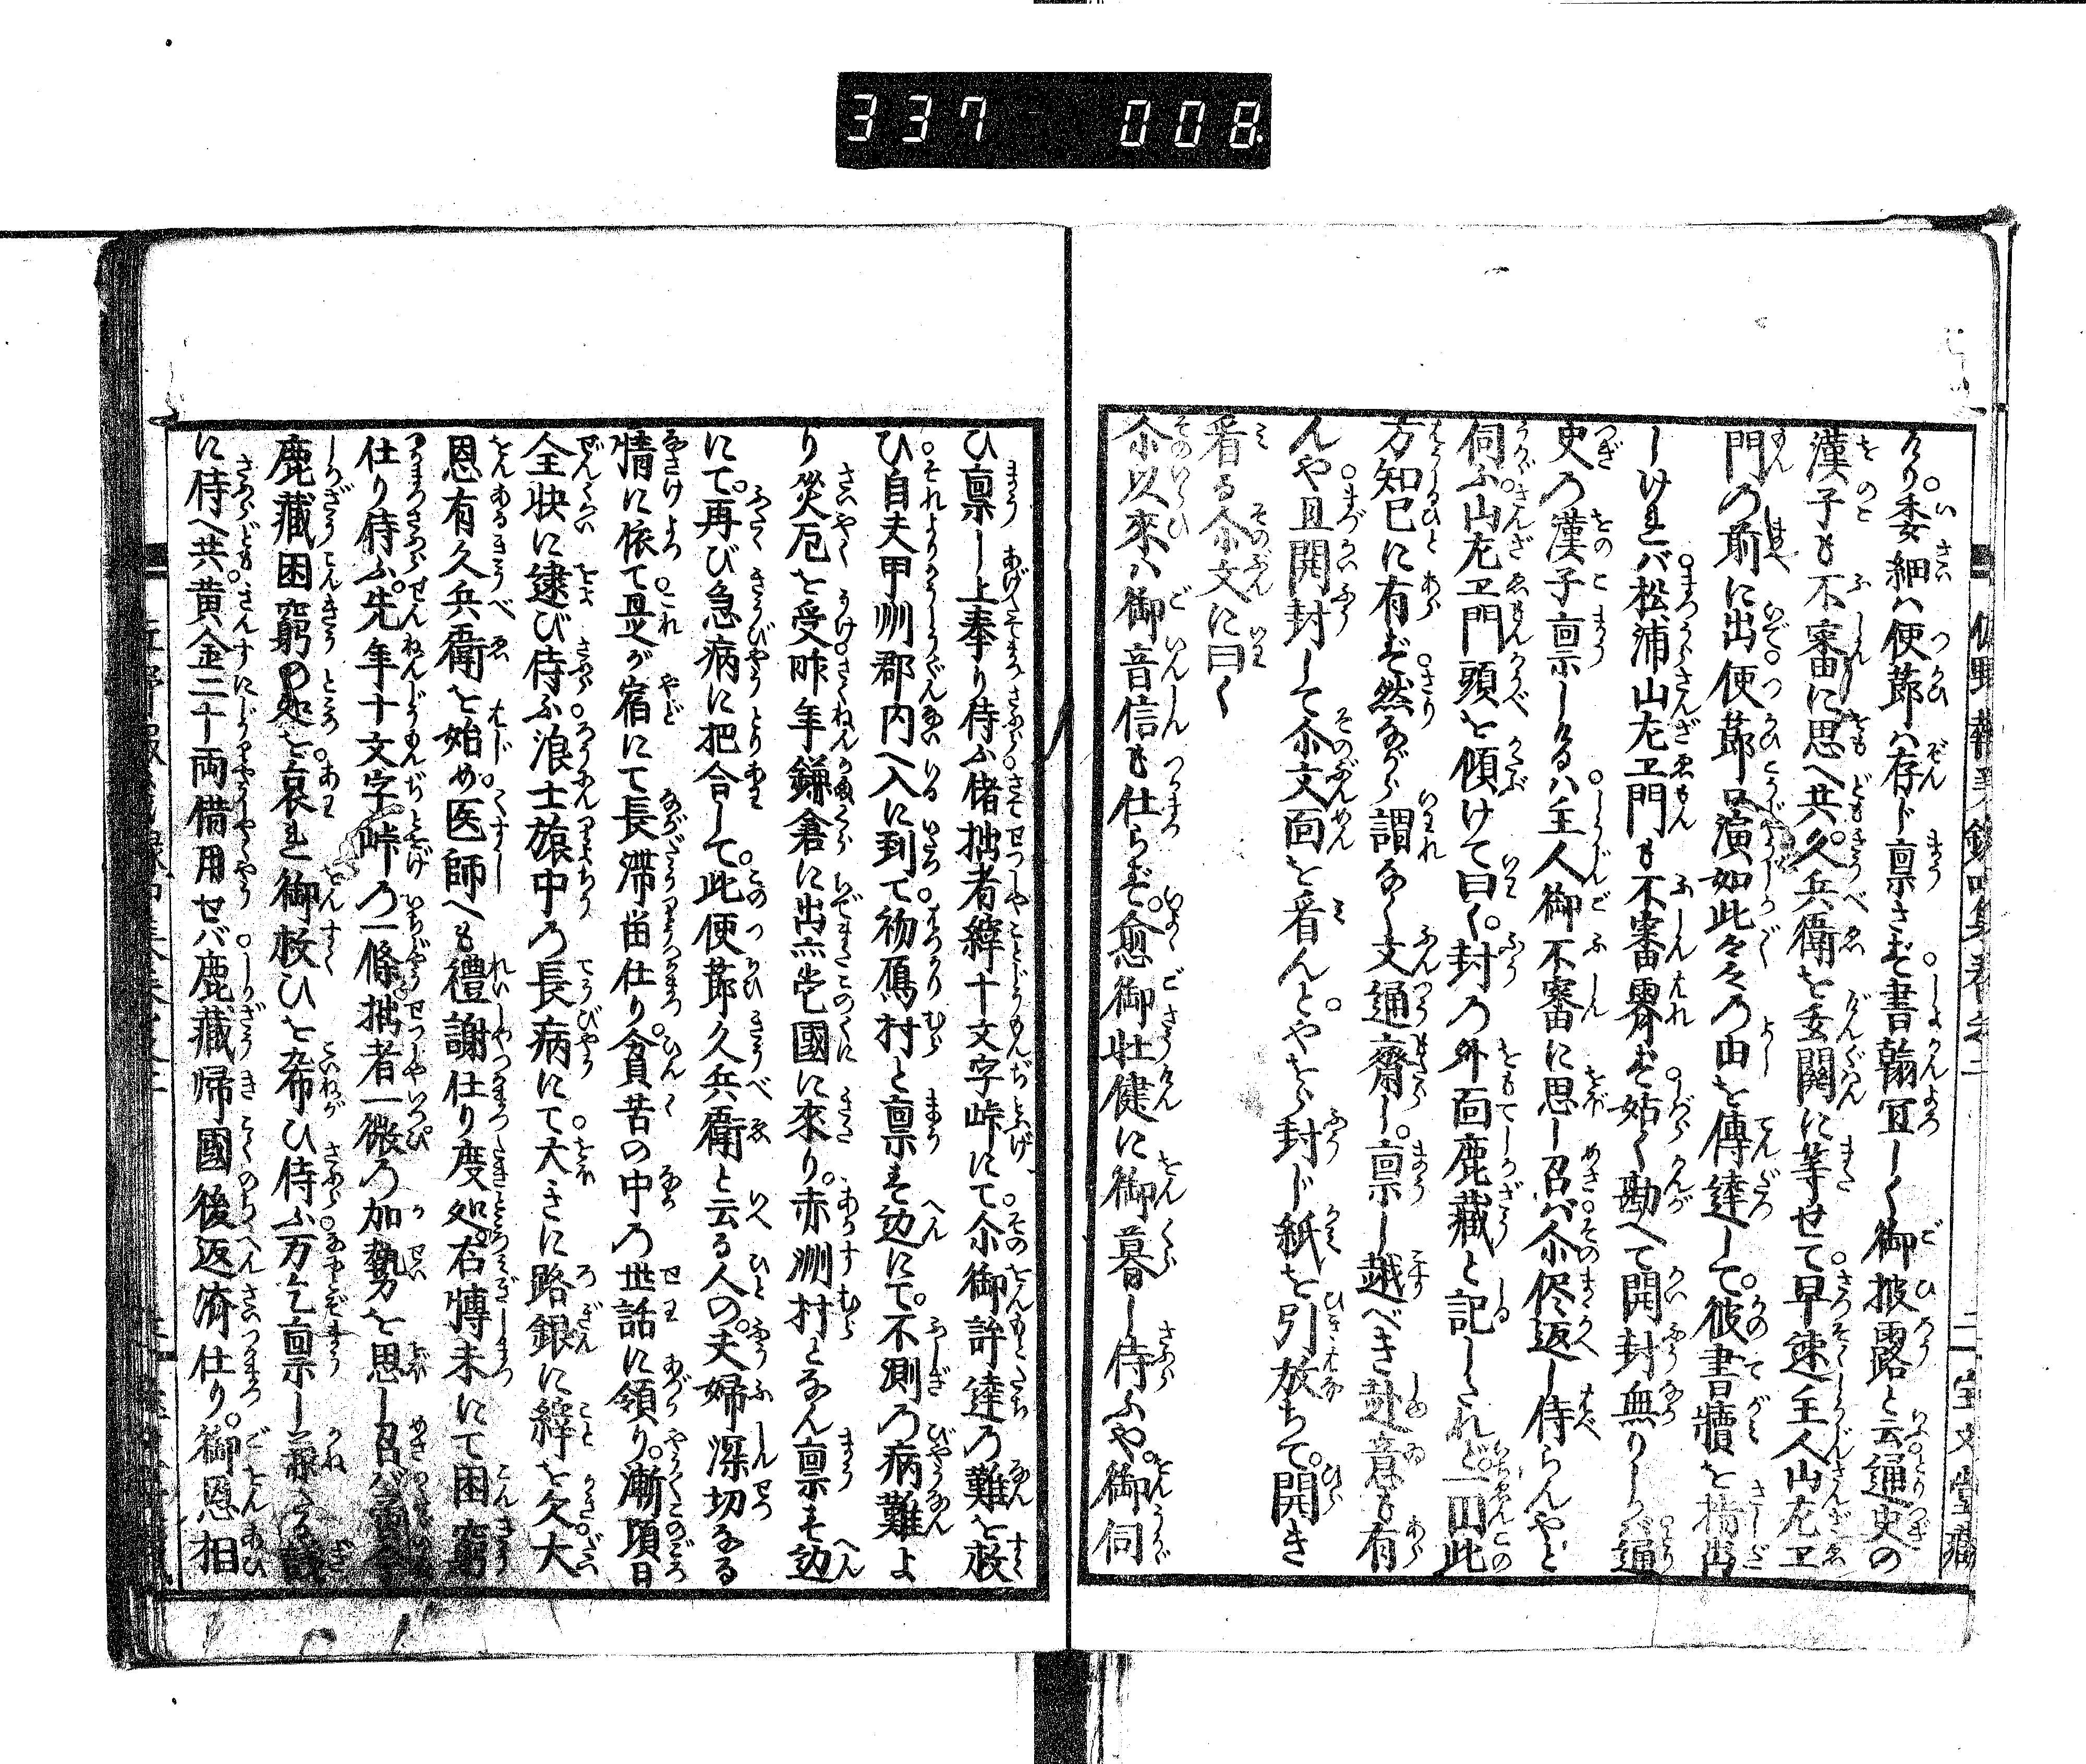 337 008
けり委細は便節は存じ禀さず書翰冝しく御披露と云通吏の
漢子も不審に思へ共久兵衛を玄関に等せて早速主人山左エ
門の前に出便節口演如此々々の由を傳達して彼書牘を指出
しければ松浦山左エ門も不審霽ず姑く勘へて開封無りしが通
吏の漢子禀しけるは主人御不審に思し召ば尒侭返し侍らんやと
伺ふ山左エ門頭を傾けて曰く封の外面鹿藏と記したれど一円此
方知已に有ず然ながら謂なく文通齎し禀し越べき赴意も有
んや且開封して尒文面を看んとやをら封じ紙を引放ちて開き
看る尒文に曰く
尒以來は御音信も仕らず愈御壮健に御暮し侍ふや御伺
ひ禀し上奉り侍ふ偖拙者緯十文字峠にて尒御許達の難を救
ひ自夫甲州郡内へ入に到て初鳫村と禀す辺にて不測の病難よ
り災厄を受昨年鎌倉に出杰此國に來り赤洲村となん禀す辺
にて再び急病に把合して此便節久兵衛と云る人の夫婦深切なる
情に依て是が宿にて長滞畄仕り貧苦の中の世話に領り漸頃日
全快に逮び侍ふ浪士旅中の長病にて大きに路銀に緯を欠大
恩有久兵衛を始め医師へも禮謝仕り度処右愽末にて困窮
仕り侍ふ先年十文字峠の一條拙者一微の加勢を思し召ば
鹿藏困窮の処を哀れ御救ひを希ひ侍ふ万乞禀し兼る
に侍へ共黄金二十両借用せば鹿藏帰國後返済仕り御恩相